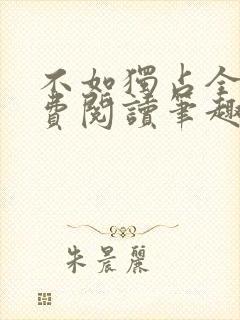 不如獨占全
費閱讀筆趣
朱晨麗